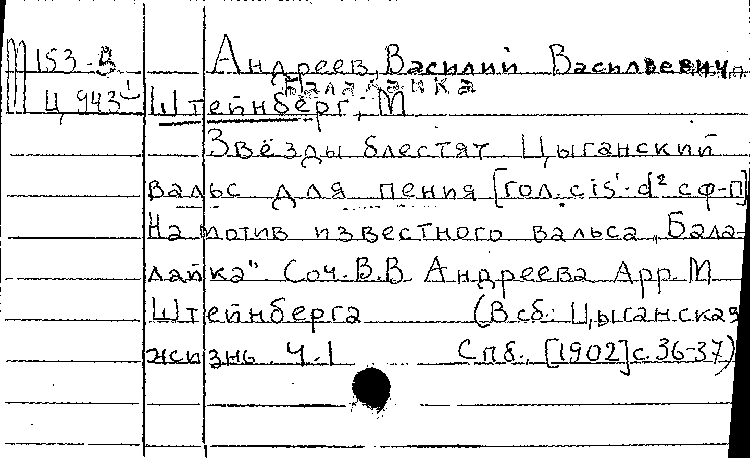 М 153-3 Андреев, Василий Васильевич
Балалайка
Ц 943 Штейнберг, М
Звёзды блестят Цыганский
вальс для пения [гол. cis¹-d² с ф-п]
На мотив известного вальса „Бала-
лайка" Соч. В.В Андреева Арр. М
Штейнберга (В сб.: Цыганская
жизнь. Ч.1 Спб., [1902] с.36-37)